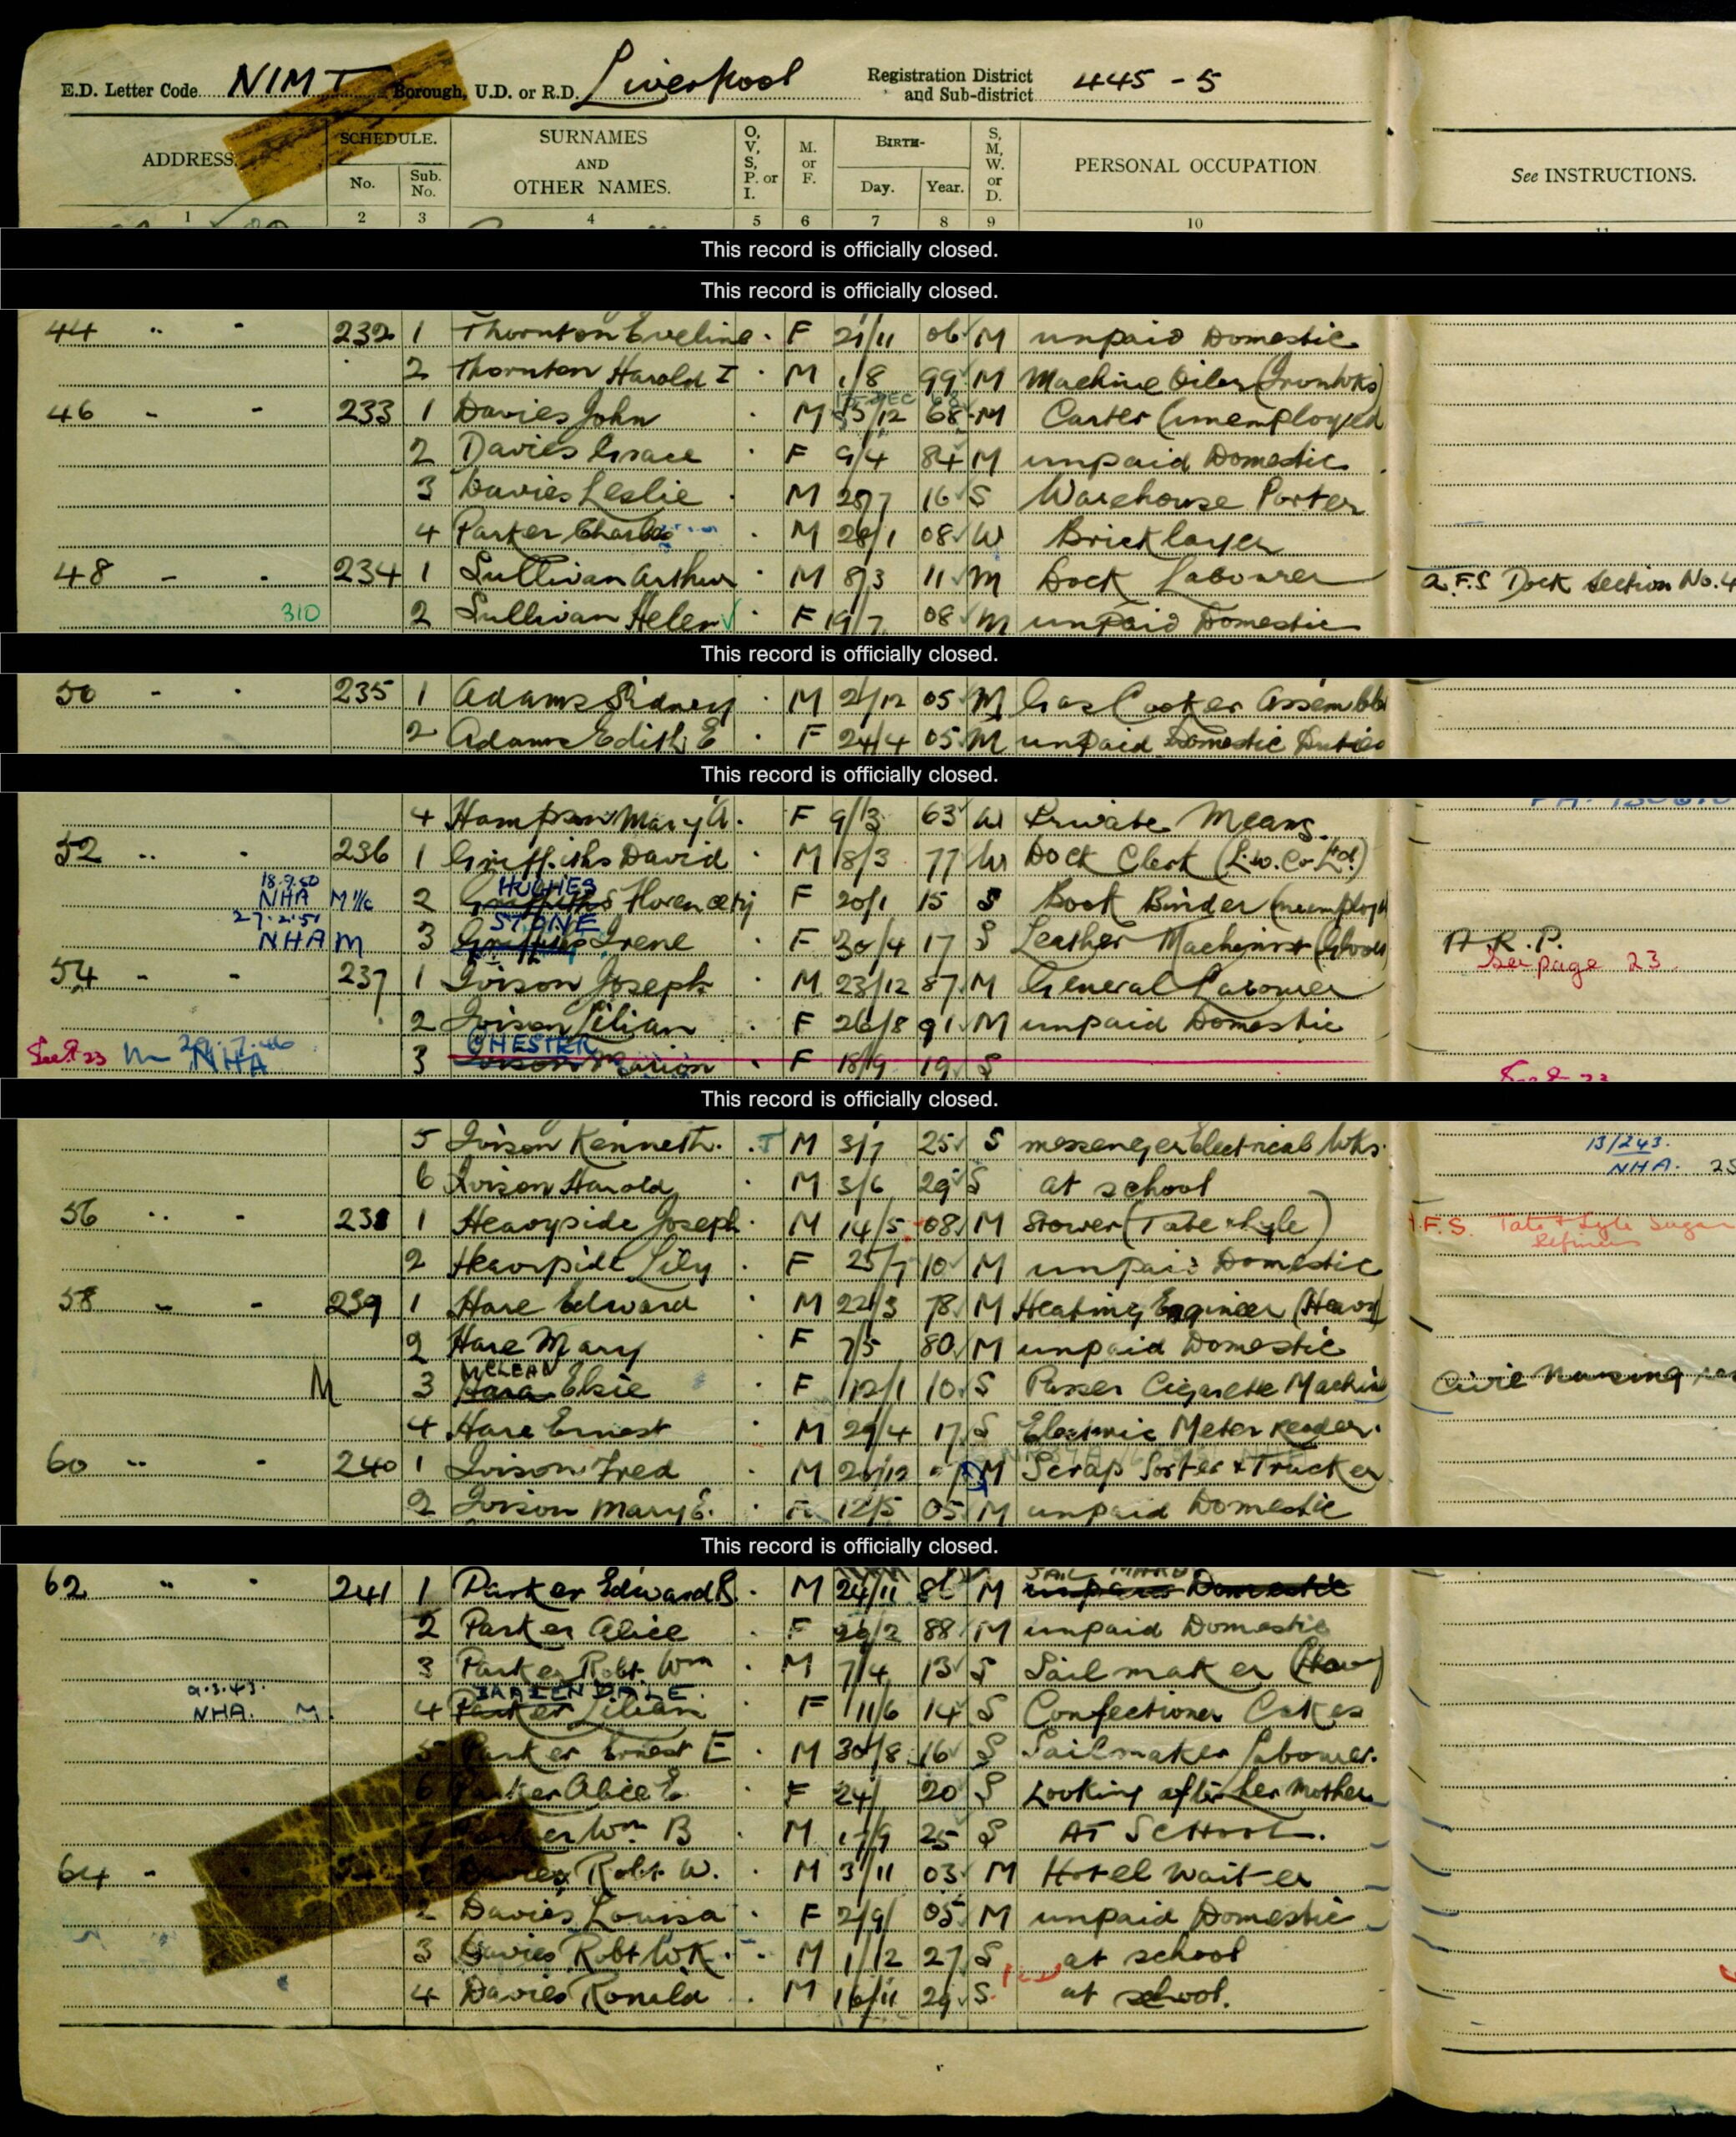 E.D. Letter Code NIMT Borough, U.D. or R.D. Liverpool Registration District and Sub-district 445-5
ADDRESS. SCHEDULE. No. Sub. No. SURNAMES AND OTHER NAMES. O, V, S, P. or I. M. or F. BIRTH- Day. Year. S, M, W. or D. PERSONAL OCCUPATION See INSTRUCTIONS.
1 2 3 4 5 6 7 8 9 10
This record is officially closed.
This record is officially closed.
44 " " 232 1 Thornton Eveline F 21/11 06 M unpaid Domestic
2 Thornton Harold I M 1/8 99 M Machine Oiler (Iron Wks)
46 - - 233 1 Davies John M 15/12 68 M Carter (unemployed
2 Davies Grace F 9/4 84 M unpaid Domestic
3 Davies Leslie M 28/7 16 S Warehouse Porter
4 Parker Charles M 28/1 08 W Bricklayer
48 - - 234 1 Sullivan Arthur M 8/3 11 M Dock Labourer A.F.S Dock Section No. 4
310 2 Sullivan Helen F 19/7 08 M unpaid Domestic
This record is officially closed.
50 - - 235 1 Adams Sidney M 2/12 05 M Gas Cooker Assembler
2 Adams Edith E F 24/4 05 M unpaid Domestic Duties
This record is officially closed.
4 Hampson Mary A. F 9/3 63 W Private Means.
52 " - 236 1 Griffiths David M 8/3 77 W Dock Clerk (L.W. Co Ltd)
18.9.50 NHA M 2 Griffiths HUGHES Florence F 20/1 15 S Book Binder (unemploy
27.2.51 NHA M 3 STONE Irene F 30/4 17 S Leather Machinist (Gloves) A.R.P. See page 23.
54 - - 237 1 Ivison Joseph M 23/12 87 M General Labourer
2 Ivison Lilian F 26/8 91 M unpaid Domestic
See P 23 M NHA 3 CHESTER Ivison Marion F 18/9 19 S
This record is officially closed.
5 Ivison Kenneth M 3/7 25 S messenger Electrical Wks. NHA.
6 Ivison Harold M 3/6 29 S at school
56 " - 238 1 Heavyside Joseph M 14/5 08 M Stower (Tate & Lyle) A.F.S. Tate & Lyle Sugar Refiners
2 Heavyside Lily F 25/7 10 M unpaid Domestic
58 - - 239 1 Hare Edward M 22/3 78 M Heating Engineer (Heavy)
2 Hare Mary F 7/5 80 M unpaid Domestic
M 3 MCLEAN Hare Elsie F 12/1 10 S Passer Cigarette Machin Civil Nursing res
4 Hare Ernest M 29/4 17 S Electric Meter Reader.
60 " - 240 1 Ivison Fred M 20/12 M Scrap Sorter & Trucker
2 Ivison Mary E. F 12/5 05 M unpaid Domestic
This record is officially closed.
62 " - 241 1 Parker Edward B. M 24/11 M SAIL MAKER unpaid Domestic
2 Parker Alice F 26/2 88 M unpaid Domestic
3 Parker Robt Wm M 7/4 13 S Sail maker (Heavy)
9.3.43. NHA. M. 4 Parker Lilian F 11/6 14 S Confectioner Cakes
5 Parker Ernest E M 30/8 16 S Sailmaker Labourer.
6 Parker Alice E. F 24/ 20 S Looking after her Mother
7 Parker Wm B M 17/9 25 S AT SCHOOL.
64 - 1 Davies Robt W. M 3/11 03 M Hotel Waiter
2 Davies Louisa F 2/9 05 M unpaid Domestic
3 Davies Robt W.K. M 1/12 27 S at school
4 Davies Ronald M 16/11 29 S at school.